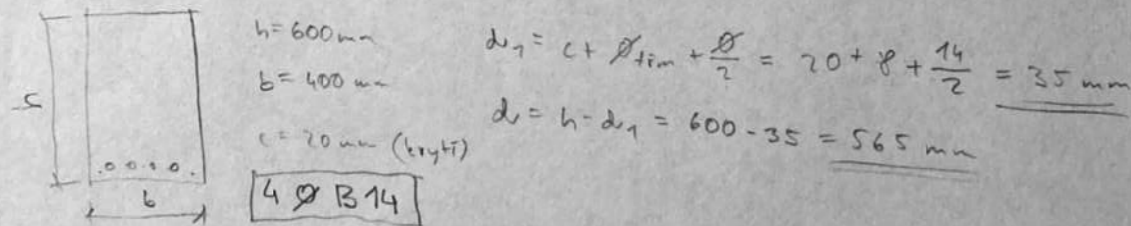 h = 600 mm
b = 400 mm
c = 20 mm (krytí)
4 Ø B 14
h
b
d₁ = c + Øtřm + Ø/2 = 20 + 8 + 14/2 = 35 mm
d = h - d₁ = 600 - 35 = 565 mm